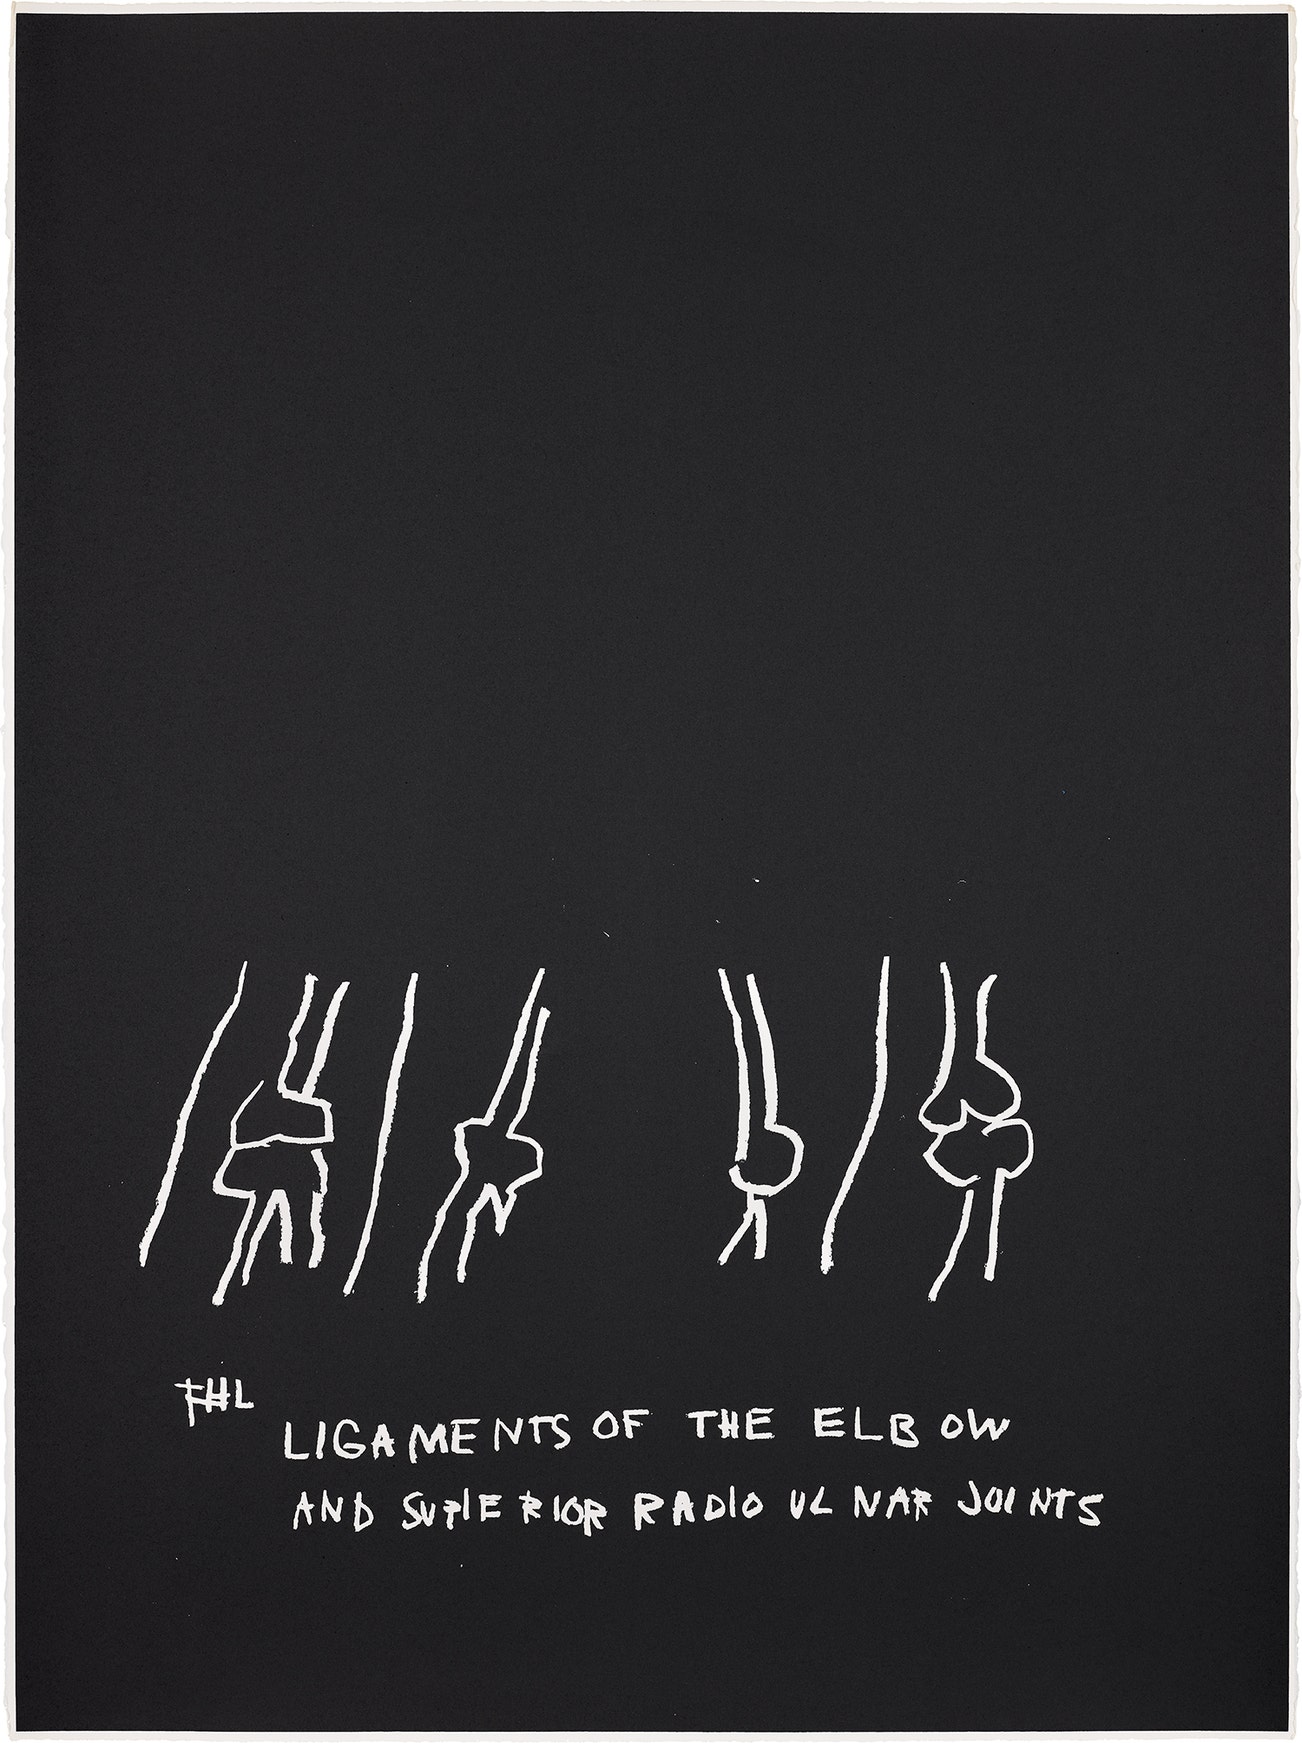 THL
LIGAMENTS OF THE ELBOW
AND SUPIERIOR RADIO ULNAR JOINTS